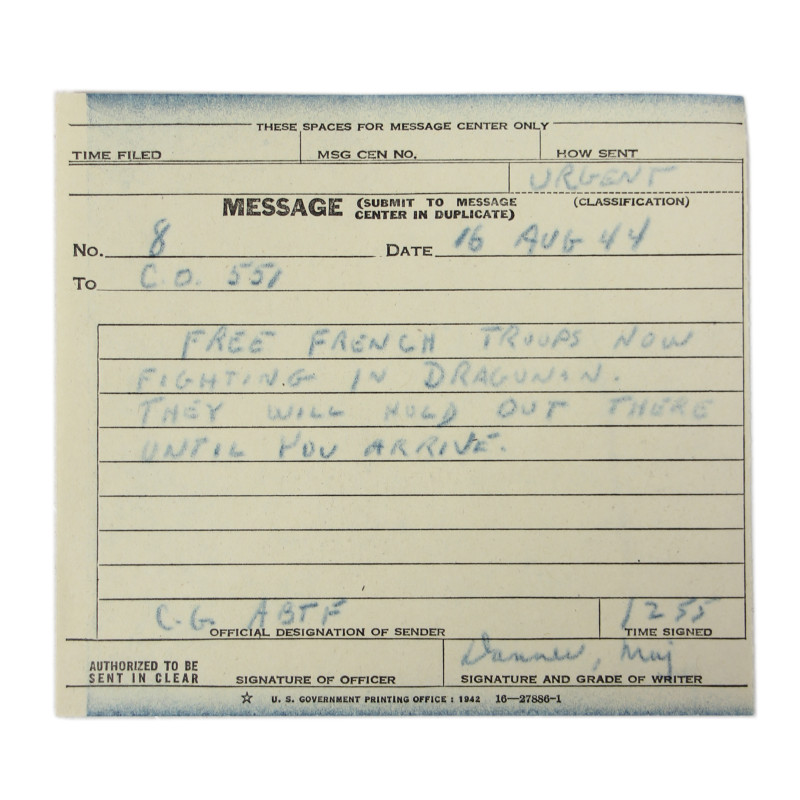 THESE SPACES FOR MESSAGE CENTER ONLY
TIME FILED MSG CEN NO. HOW SENT
URGENT
MESSAGE (SUBMIT TO MESSAGE CENTER IN DUPLICATE) (CLASSIFICATION)
No. 8 DATE 16 AUG 44
To C.O. 551
FREE FRENCH TROOPS NOW
FIGHTING IN DRAGUNON.
THEY WILL HOLD OUT THERE
UNTIL YOU ARRIVE.
C.G. ABTF 1255
OFFICIAL DESIGNATION OF SENDER TIME SIGNED
Maj
AUTHORIZED TO BE SENT IN CLEAR SIGNATURE OF OFFICER SIGNATURE AND GRADE OF WRITER
☆ U. S. GOVERNMENT PRINTING OFFICE : 1942 16—27886-1